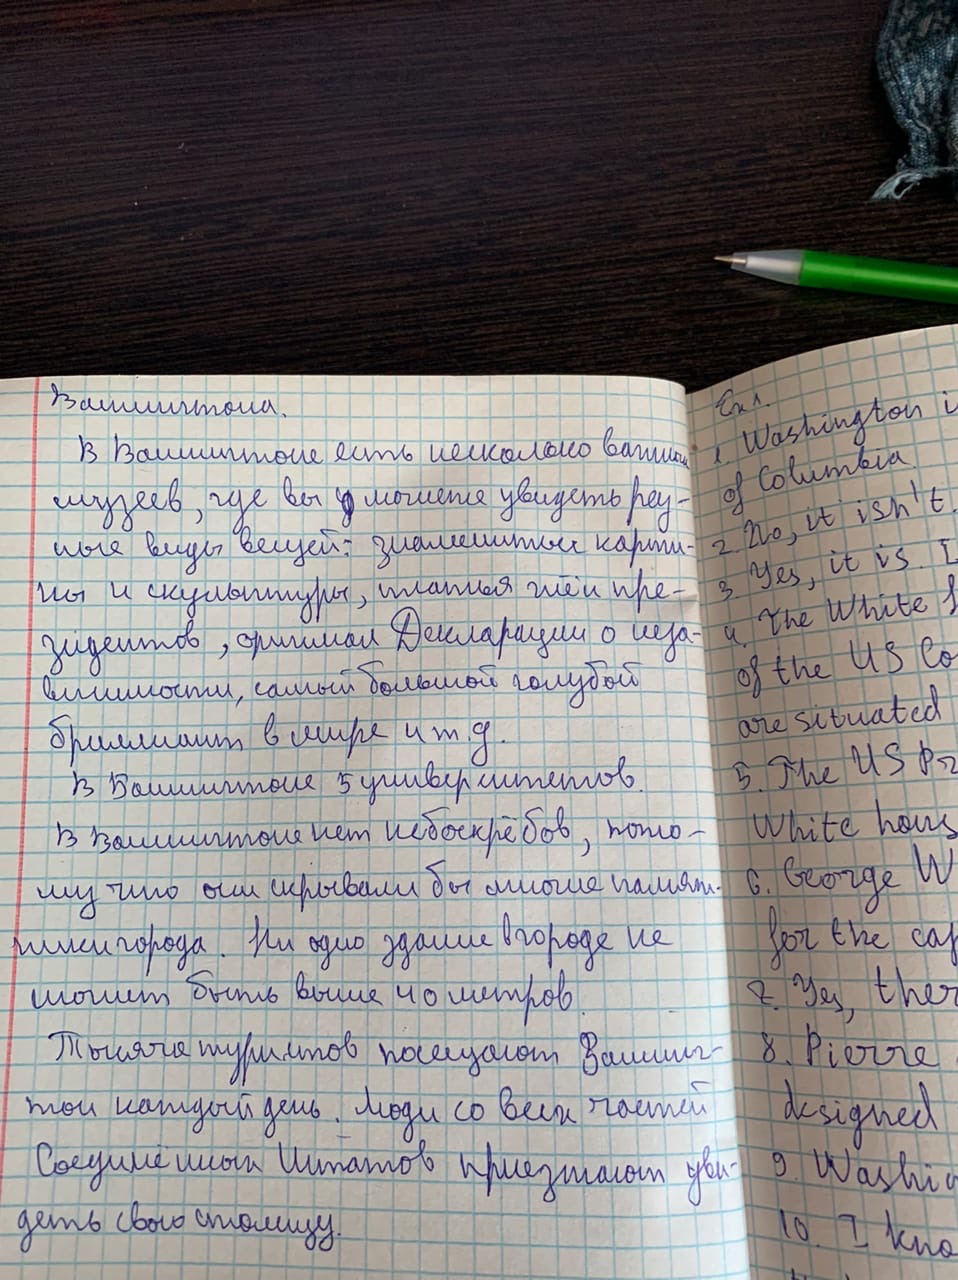 Вашингтона.
В Вашингтоне есть несколько важных
музеев, где вы можете увидеть
виды вещей: знаменитые карти-
ны и скульптуры, платья жён пре-
зидентов, оригинал Декларации о неза-
висимости, самый большой голубой
бриллиант в мире и т д.
В Вашингтоне 5 университетов.
В Вашингтоне нет небоскрёбов, пото-
му что они скрывали бы многие памят-
ники города. Ни одно здание в городе не
может быть выше 40 метров.
Тысяча туристов посещают Вашинг-
тон каждый день. Люди со всех частей
Соединённых Штатов приезжают уви-
деть свою столицу.
Ex 1.
1. Washington
of Columbia.
2. No, it isn't.
3. Yes, it is.
4. The White
of the US
are situated
5. The US
White
6. George
for the
7. Yes,
8. Pierre
designed
9.
10. I